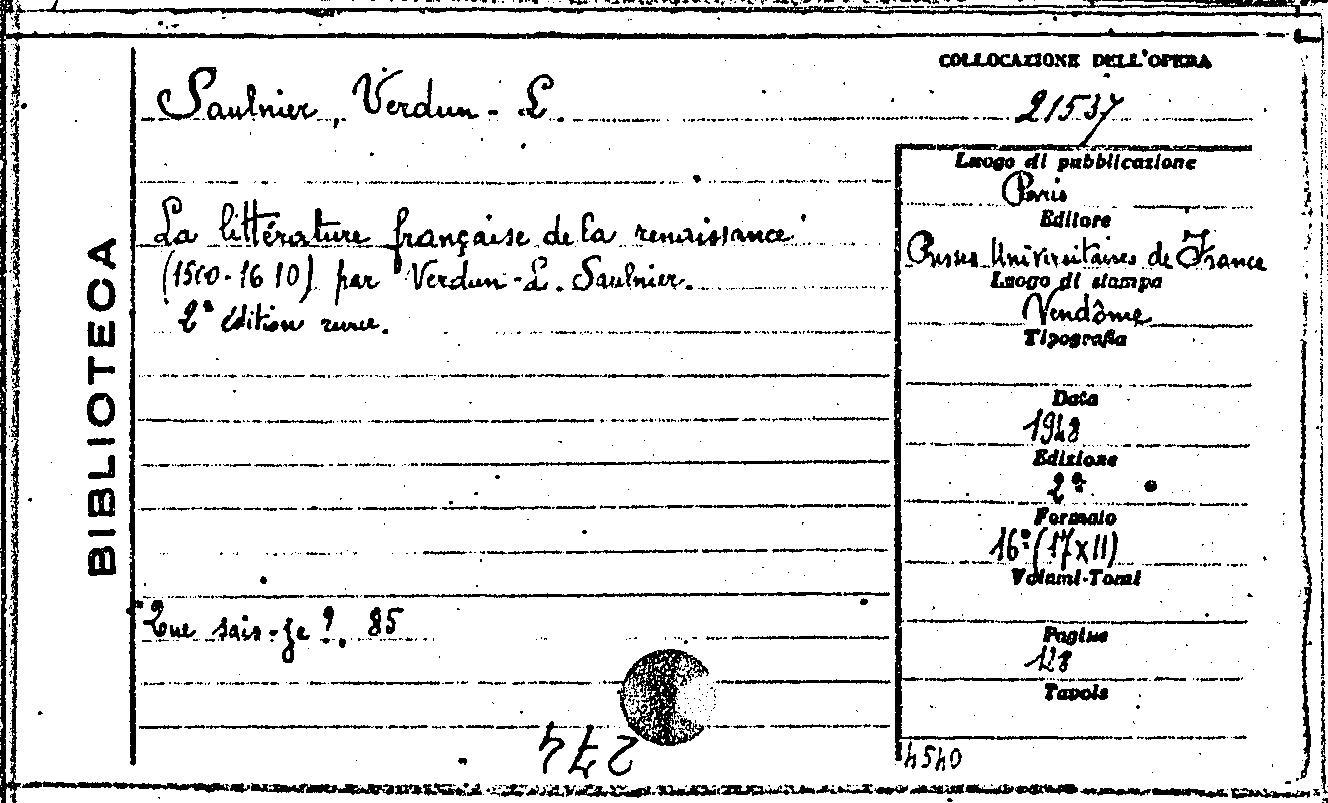 COLLOCAZIONE DELL'OPERA
Saulnier, Verdun-L.
21537
BIBLIOTECA
La littérature française de la renaissance
(1500-1610) par Verdun-L. Saulnier.
2ª édition
Que sais-je?. 85
Luogo di pubblicazione
Paris
Editore
Presses Universitaires de France
Luogo di stampa
Vendôme
Tipografia
Data
1948
Edizione
2ª
Formato
16º (17x11)
Volumi-Tomi
Pagine
128
Tavole